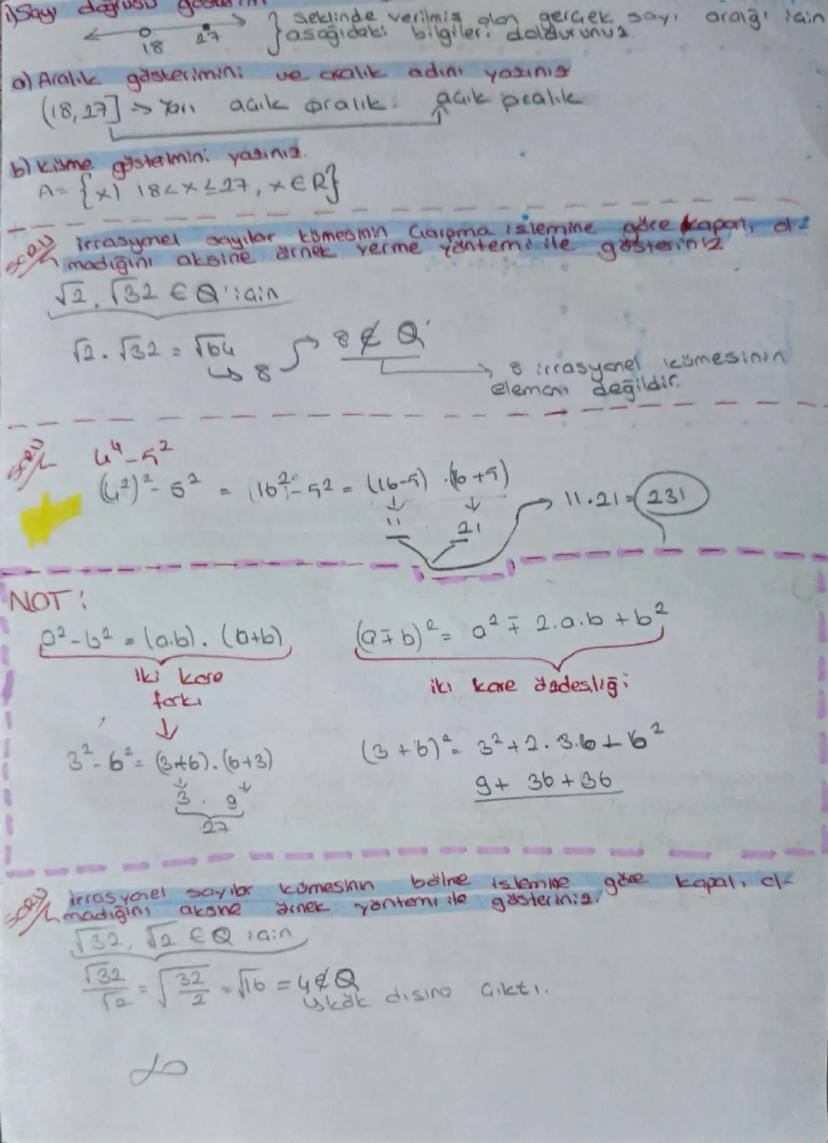 i) Sayı doğrusu gösterim
18 27 } şeklinde verilmiş olan gerçek sayı aralığı için
aşağıdaki bilgileri doldurunuz
a) Aralık gösterimini ve aralık adını yazınız
(18,27] => Yarı açık aralık. açık aralık
b) Küme gösterimini yazınız.
A= {x| 18<x≤27, x∈R}
irrasyonel sayılar kümesinin Çarpma işlemine göre kapalı ol-
madığını aksine örnek verme yöntemi ile gösteriniz
√2, √32 ∈ Q' için
√2 . √32 = √64
↳ 8
8 ∉ Q'
8 irrasyonel kümesinin
elemanı değildir.
4⁴ - 5²
(4²)² - 5² = (16)² - 5² = (16-5) . (16+5)
11 21
11.21 = 231
NOT:
a² - b² = (a.b) . (a+b)
(a∓b)² = a² ∓ 2.a.b + b²
İki kare
farkı
iki kare özdeşliği
3² - 6² = (3+6) . (6+3)
3 . 9
27
(3+6)² = 3² + 2.3.6 + 6²
9 + 36 + 36
irrasyonel sayılar kümesinin bölme işlemine göre kapalı ol-
madığını aksine örnek yöntemi ile gösteriniz.
√32, √2 ∈ Q için
√32/√2 = √32/2 = √16 = 4 ∉ Q
↳ kök dışına çıktı.